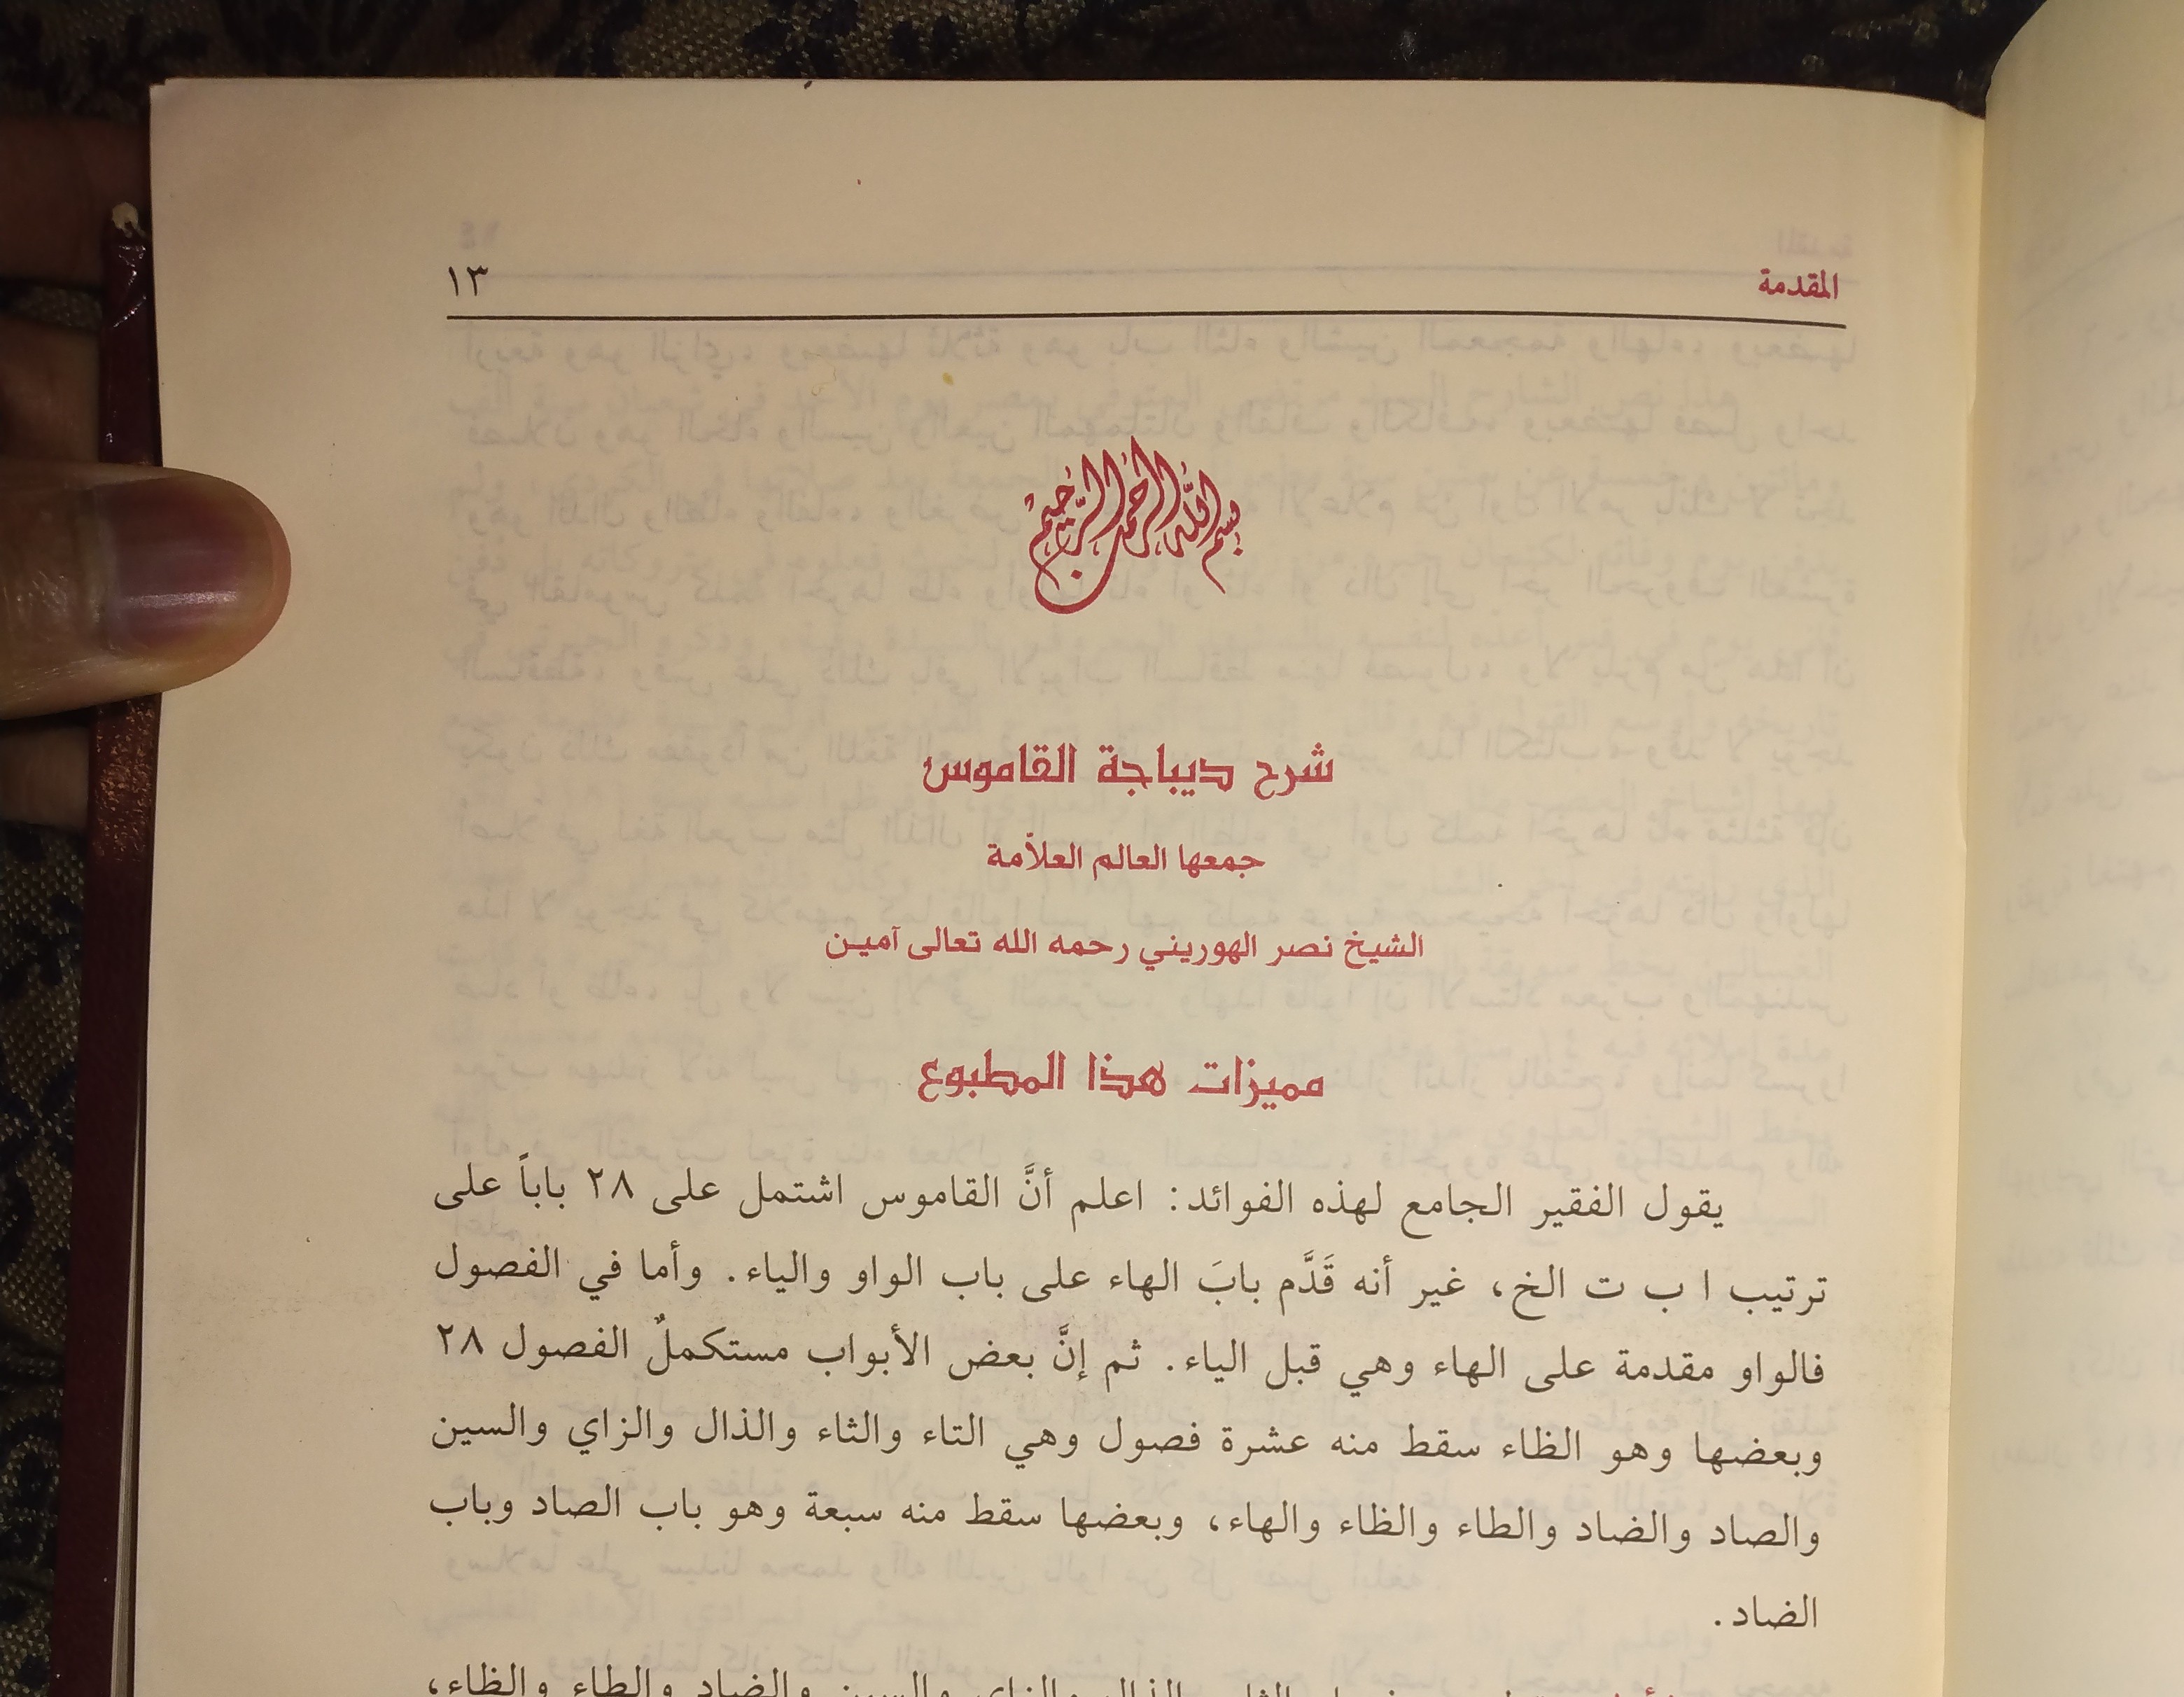 المقدمة ١٣
بسم الله الرحمن الرحيم
شرح ديباجة القاموس
جمعها العالم العلاّمة
الشيخ نصر الهوريني رحمه الله تعالى آمين
مميزات هذا المطبوع
يقول الفقير الجامع لهذه الفوائد: اعلم أنَّ القاموس اشتمل على ٢٨ باباً على
ترتيب ا ب ت الخ، غير أنه قَدَّم بابَ الهاء على باب الواو والياء. وأما في الفصول
فالواو مقدمة على الهاء وهي قبل الياء. ثم إنَّ بعض الأبواب مستكملٌ الفصول ٢٨
وبعضها وهو الظاء سقط منه عشرة فصول وهي التاء والثاء والذال والزاي والسين
والصاد والضاد والطاء والظاء والهاء، وبعضها سقط منه سبعة وهو باب الصاد وباب
الضاد.
والذال والزاي والسين والضاد والطاء والظاء،